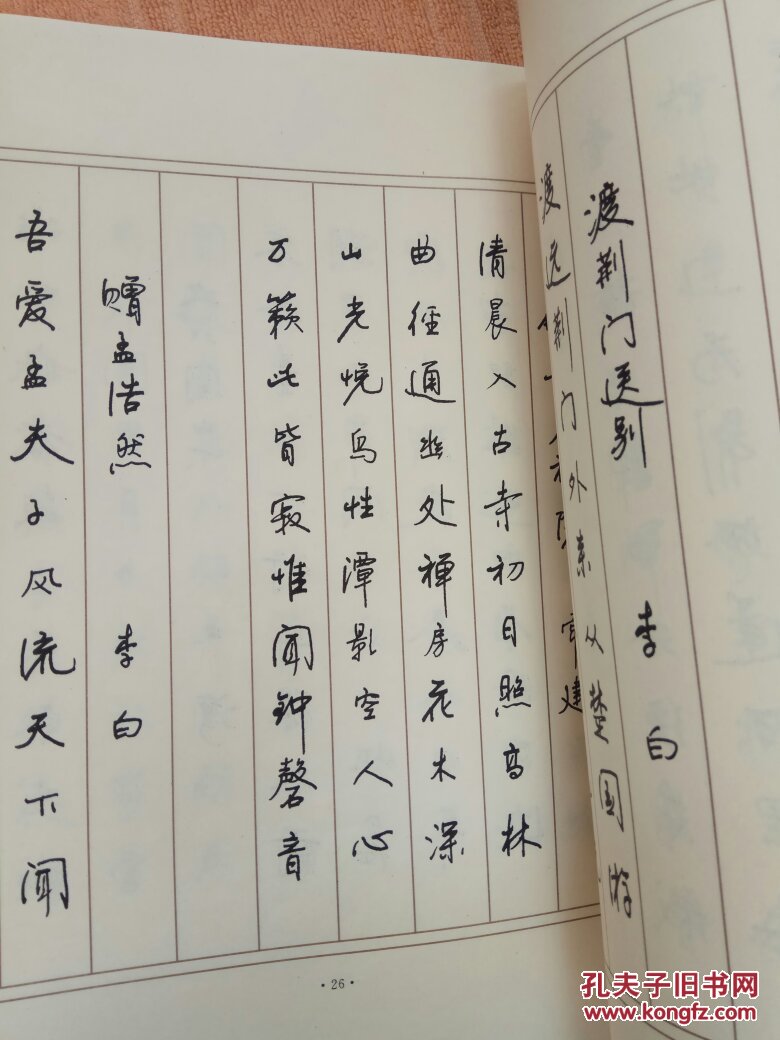 常建
清晨入古寺初日照高林
曲径通幽处禅房花木深
山光悦鸟性潭影空人心
万籁此皆寂惟闻钟磬音
赠孟浩然 李白
吾爱孟夫子风流天下闻
·26·
渡荆门送别 李白
渡远荆门外来从楚国游
孔夫子旧书网
www.kongfz.com